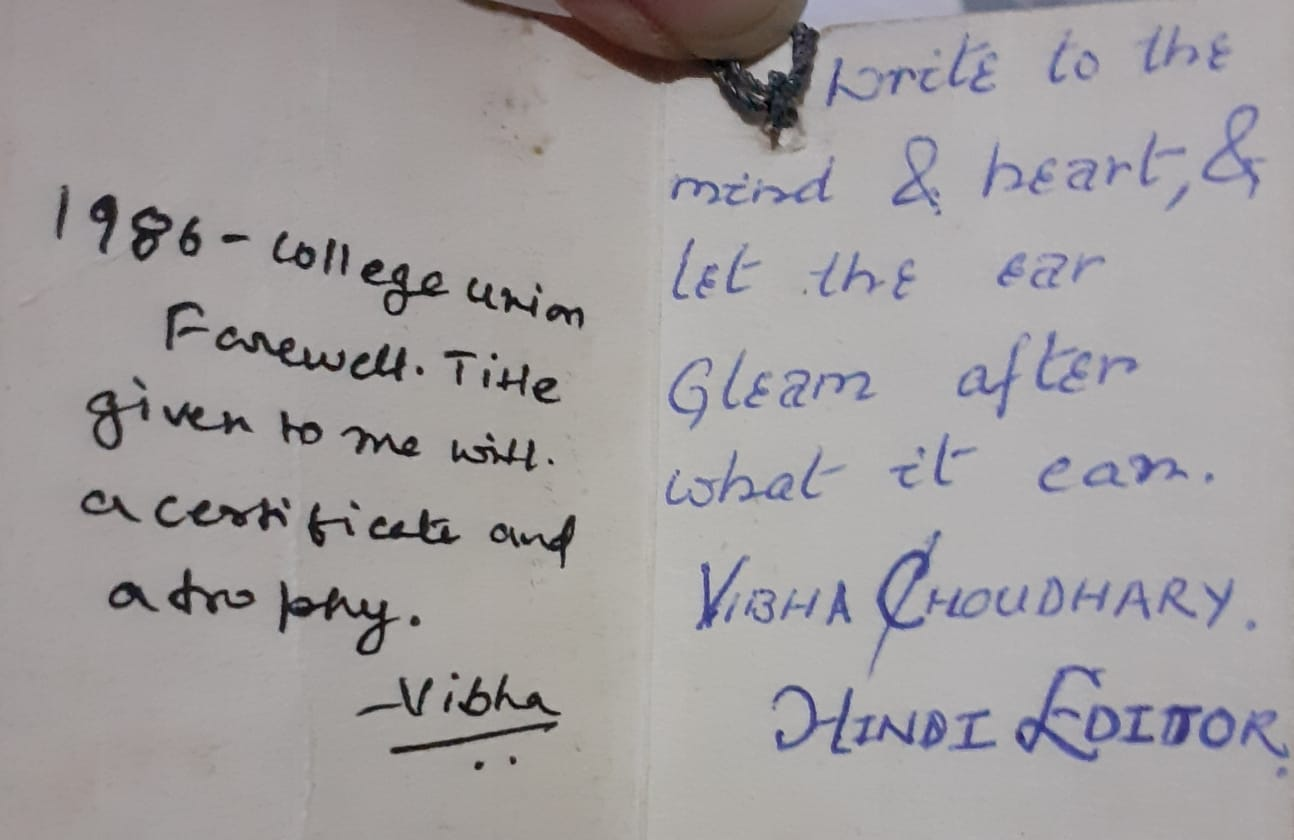 1986 - College union
Farewell. Title
given to me with.
a certificate and
a trophy.
- Vibha
write to the
mind & heart, &
let the ear
Gleam after
what it can.
VIBHA CHOUDHARY.
HINDI EDITOR.